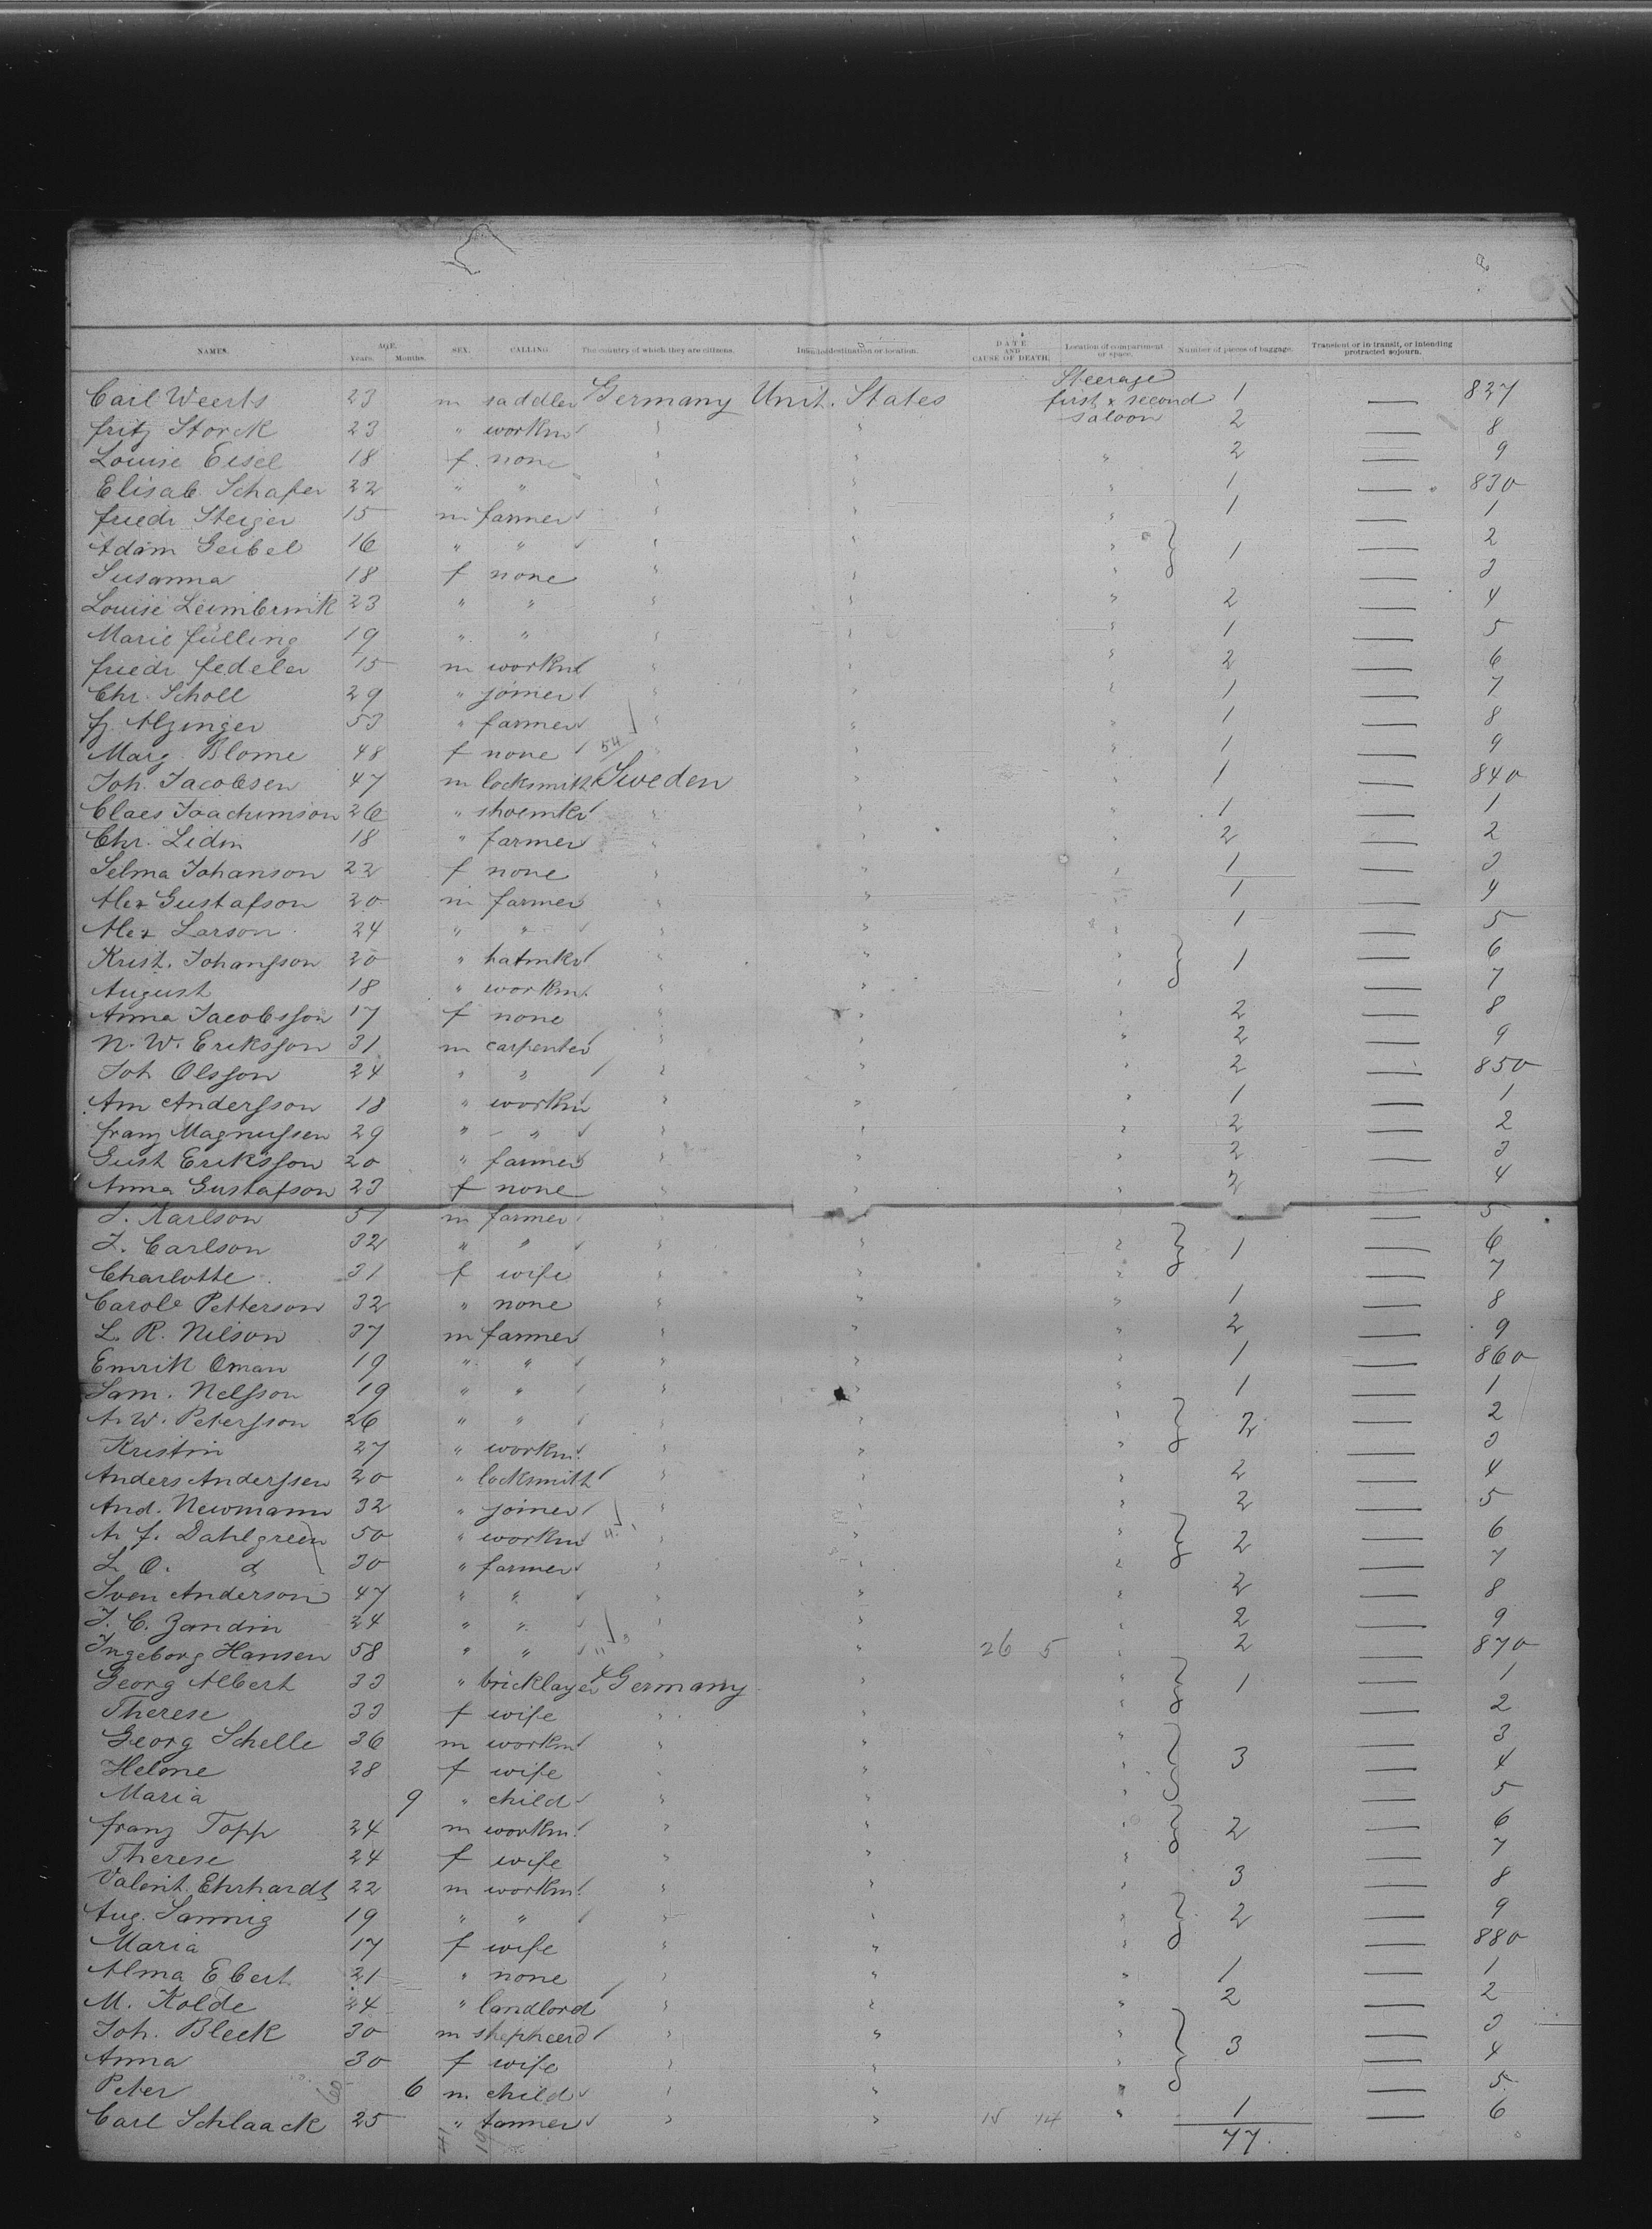 NAMES. AGE. Years. Months. SEX. CALLING. The country of which they are citizens. Intended destination or location. DATE AND CAUSE OF DEATH. Location of compartment or space. Number of pieces of baggage. Transient or in transit, or intending protracted sojourn.
Carl Weerts 23 m saddler Germany Unit. States Steerage first & second saloon 1 — 827
fritz Storck 23 " workm " " 2 — 8
Louise Eisel 18 f. none " " " 2 — 9
Elisab. Schafer 22 " " " " " 1 — 830
friedr Steiger 15 m farmer " " " 1 — 1
Adam Geibel 16 " " " " " } 1 — 2
Susanna 18 f none " " " — 3
Louise Leimbrink 23 " " " " " 2 — 4
Marie fülling 19 " " " " " 1 — 5
friedr fedeler 15 m workm " " " 2 — 6
Chr. Scholl 29 " joiner " " " 1 — 7
fz. Alzinger 53 " farmer " " " 1 — 8
Marg. Blome 48 f none 54 " " " 1 — 9
Joh. Jacobsen 47 m locksmith Sweden " " 1 — 840
Claes Joachimson 26 " shoemkr " " " 1 — 1
Chr. Lidin 18 " farmer " " " 2 — 2
Selma Johanson 22 f none " " " 1 — 3
Alex Gustafson 20 m farmer " " " 1 — 4
Alex Larson 24 " " " " " 1 — 5
Krist. Johansson 20 " hatmkr " " " } 1 — 6
August 18 " workm. " " " — 7
Anna Jacobsson 17 f none " " " 2 — 8
N. W. Eriksson 31 m carpenter " " " 2 — 9
Joh Olsson 24 " " " " " 2 — 850
Am Andersson 18 " workm " " " 1 — 1
franz Magnussen 29 " " " " " 2 — 2
Gust Eriksson 20 " farmer " " " 2 — 3
Anna Gustafson 23 f none " " " 2 — 4
Karlson 51 m farmer " — 5
J. Carlson 32 " " " " " } 1 — 6
Charlotte 31 f wife " " " — 7
Carole Petterson 32 " none " " " 1 — 8
L. R. Nilson 37 m farmer " " " 2 — 9
Emrik Oman 19 " " " " " 1 — 860
Sam. Nelsson 19 " " " " " 1 — 1
A. W. Petersson 26 " " " " " } 2 — 2
Kristin 27 " workm. " " " — 3
Anders Anderssen 20 " locksmith " " " 2 — 4
And. Newmann 32 " joiner " " " 2 — 5
A. f. Dahlgreen 50 " workm " " " } 2 — 6
L. O. d 30 " farmer " " " — 7
Sven Anderson 47 " " " " " 2 — 8
J. C. Zandin 24 " " " " " 2 — 9
Ingeborg Hansen 58 " " " " 26 5 " 2 — 870
Georg Albert 33 " bricklayer Germany " " } 1 — 1
Therese 33 f wife " " " — 2
Georg Schelle 36 m workm " " " } 3 — 3
Helene 28 f wife " " " — 4
Maria 9 " child " " " — 5
franz Topp 24 m workm. " " " } 2 — 6
Therese 24 f wife " " " — 7
Valent. Ehrhardt 22 m workm. " " " 3 — 8
Aug. Sannig 19 " " " " " } 2 — 9
Maria 17 f wife " " " — 880
Alma Ebert 21 " none " " " 1 — 1
M. Kolde 24 " landlord " " " 2 — 2
Joh. Bleck 30 m shepheerd " " " } 3 — 3
Anna 30 f wife " " " — 4
Peter 6 m. child " " " — 5
Carl Schlaack 25 " tanner " " 15 14 " 1 — 6
60 41 19 77.